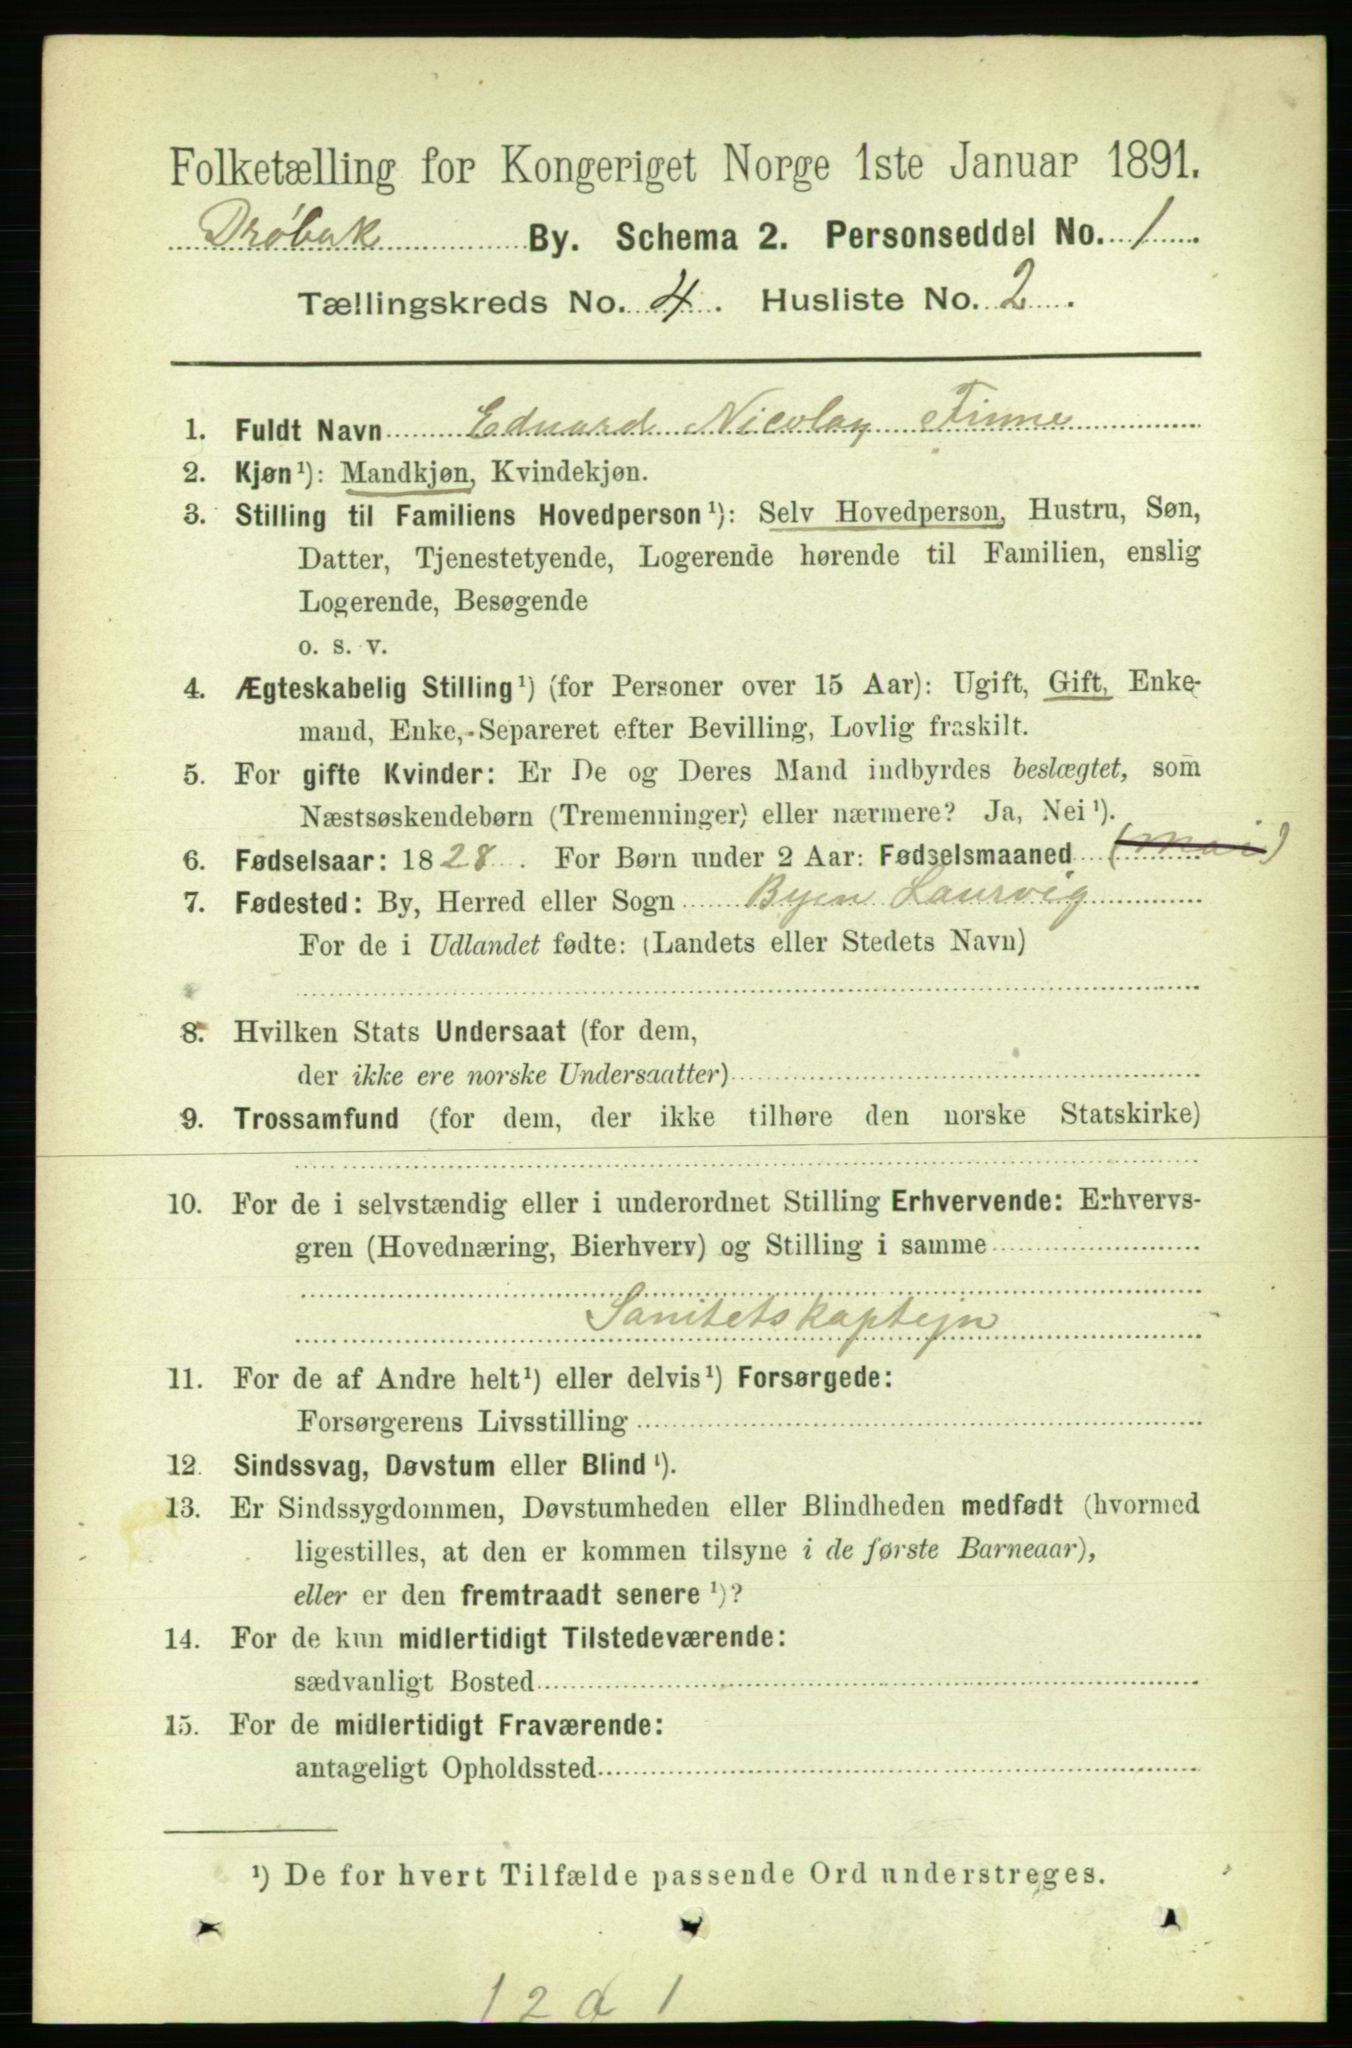 Folketælling for Kongeriget Norge 1ste Januar 1891.
Drøbak By. Schema 2. Personseddel No. 1
Tællingskreds No. 4. Husliste No. 2.
1. Fuldt Navn Eduard Nicolay Finne
2. Kjøn¹): Mandkjøn, Kvindekjøn.
3. Stilling til Familiens Hovedperson¹): Selv Hovedperson, Hustru, Søn,
Datter, Tjenestetyende, Logerende hørende til Familien, enslig
Logerende, Besøgende
o. s. v.
4. Ægteskabelig Stilling¹) (for Personer over 15 Aar): Ugift, Gift, Enke-
mand, Enke, Separeret efter Bevilling, Lovlig fraskilt.
5. For gifte Kvinder: Er De og Deres Mand indbyrdes beslægtet, som
Næstsøskendebørn (Tremenninger) eller nærmere? Ja, Nei¹).
6. Fødselsaar: 1828. For Børn under 2 Aar: Fødselsmaaned (Mai)
7. Fødested: By, Herred eller Sogn Byen Laurvig
For de i Udlandet fødte: (Landets eller Stedets Navn)
8. Hvilken Stats Undersaat (for dem,
der ikke ere norske Undersaatter)
9. Trossamfund (for dem, der ikke tilhøre den norske Statskirke)
10. For de i selvstændig eller i underordnet Stilling Erhvervende: Erhvervs-
gren (Hovednæring, Bierhverv) og Stilling i samme
Sanitetskaptejn
11. For de af Andre helt¹) eller delvis¹) Forsørgede:
Forsørgerens Livsstilling
12. Sindssvag, Døvstum eller Blind¹).
13. Er Sindssygdommen, Døvstumheden eller Blindheden medfødt (hvormed
ligestilles, at den er kommen tilsyne i de første Barneaar),
eller er den fremtraadt senere¹)?
14. For de kun midlertidigt Tilstedeværende:
sædvanligt Bosted
15. For de midlertidigt Fraværende:
antageligt Opholdssted
¹) De for hvert Tilfælde passende Ord understreges.